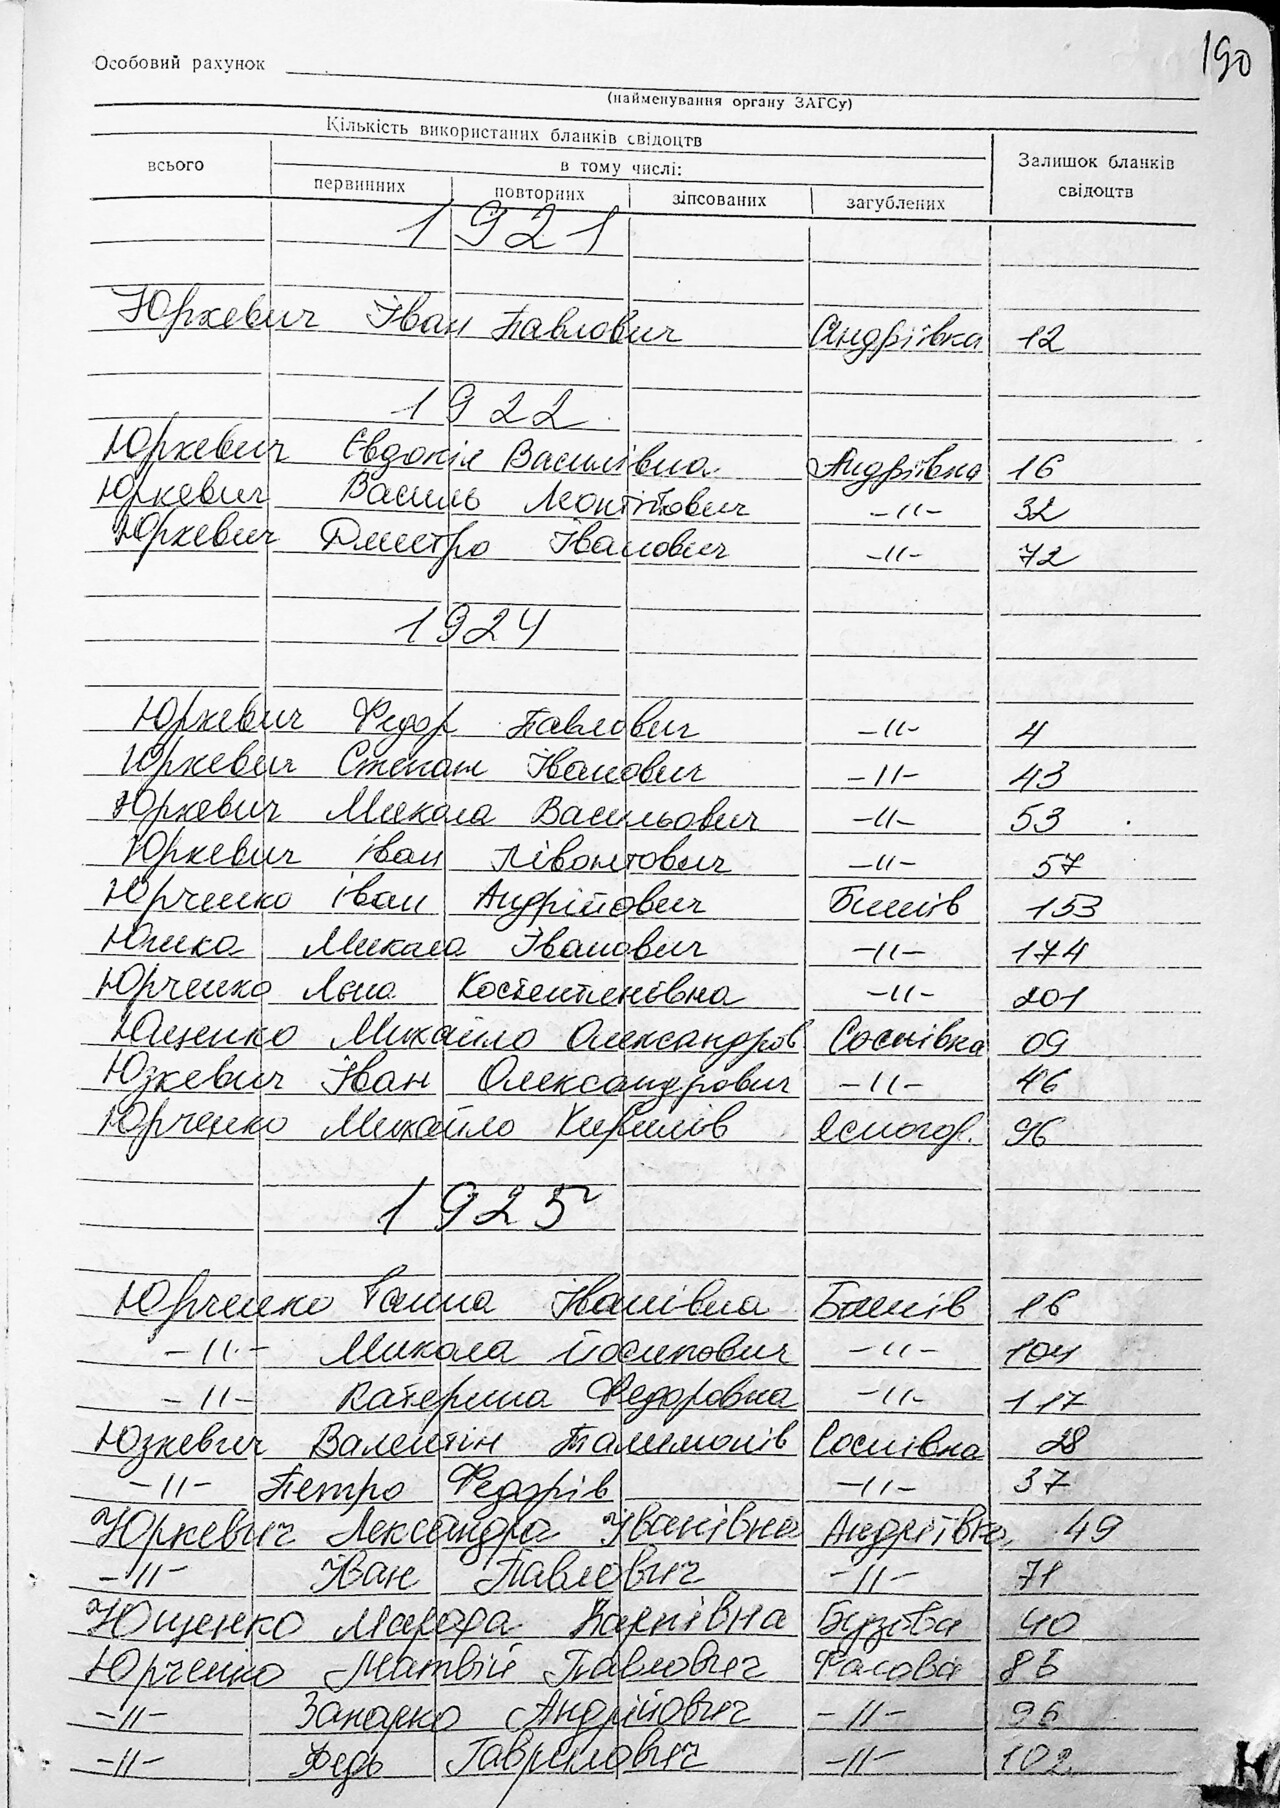 190
Особовий рахунок
(найменування органу ЗАГСу)
Кількість використаних бланків свідоцтв
всього
в тому числі:
Залишок бланків свідоцтв
первинних повторних зіпсованих загублених
1921
Юркевич Іван Павлович Андріївка 12
1922
Юркевич Євдокія Василівна Андріївка 16
Юркевич Василь Леонтійович -//- 32
Юркевич Дмитро Іванович -//- 72
1924
Юркевич Федор Павлович -//- 4
Юркевич Степан Іванович -//- 43
Юркевич Микола Васильович -//- 53
Юркевич Іван Лівонтович -//- 57
Юрченко Іван Андрійович Бишів 153
Микола Іванович -//- 174
Юрченко Костентенівна -//- 201
Ющенко Михайло Олександров Соснівка 09
Юзкевич Іван Олександрович -//- 46
Юрченко Михайло Кирилів Ясногор. 96
1925
Юрченко Ганна Іванівна Бишів 16
-//- Микола Йосипович -//- 104
-//- Катерина Федоровна -//- 117
Юзкевич Валентін Палимонів Соснівка 28
-//- Петро Федорів -//- 37
Юркевич Лександра Іванівна Андріївка 49
-//- Іван Павлович -//- 71
Ющенко Марфа Карпівна Бузова 40
Юрченко Матвій Павлович Фасова 86
-//- Захарко Андрійович -//- 96
-//- Федь Гаврилович -//- 102